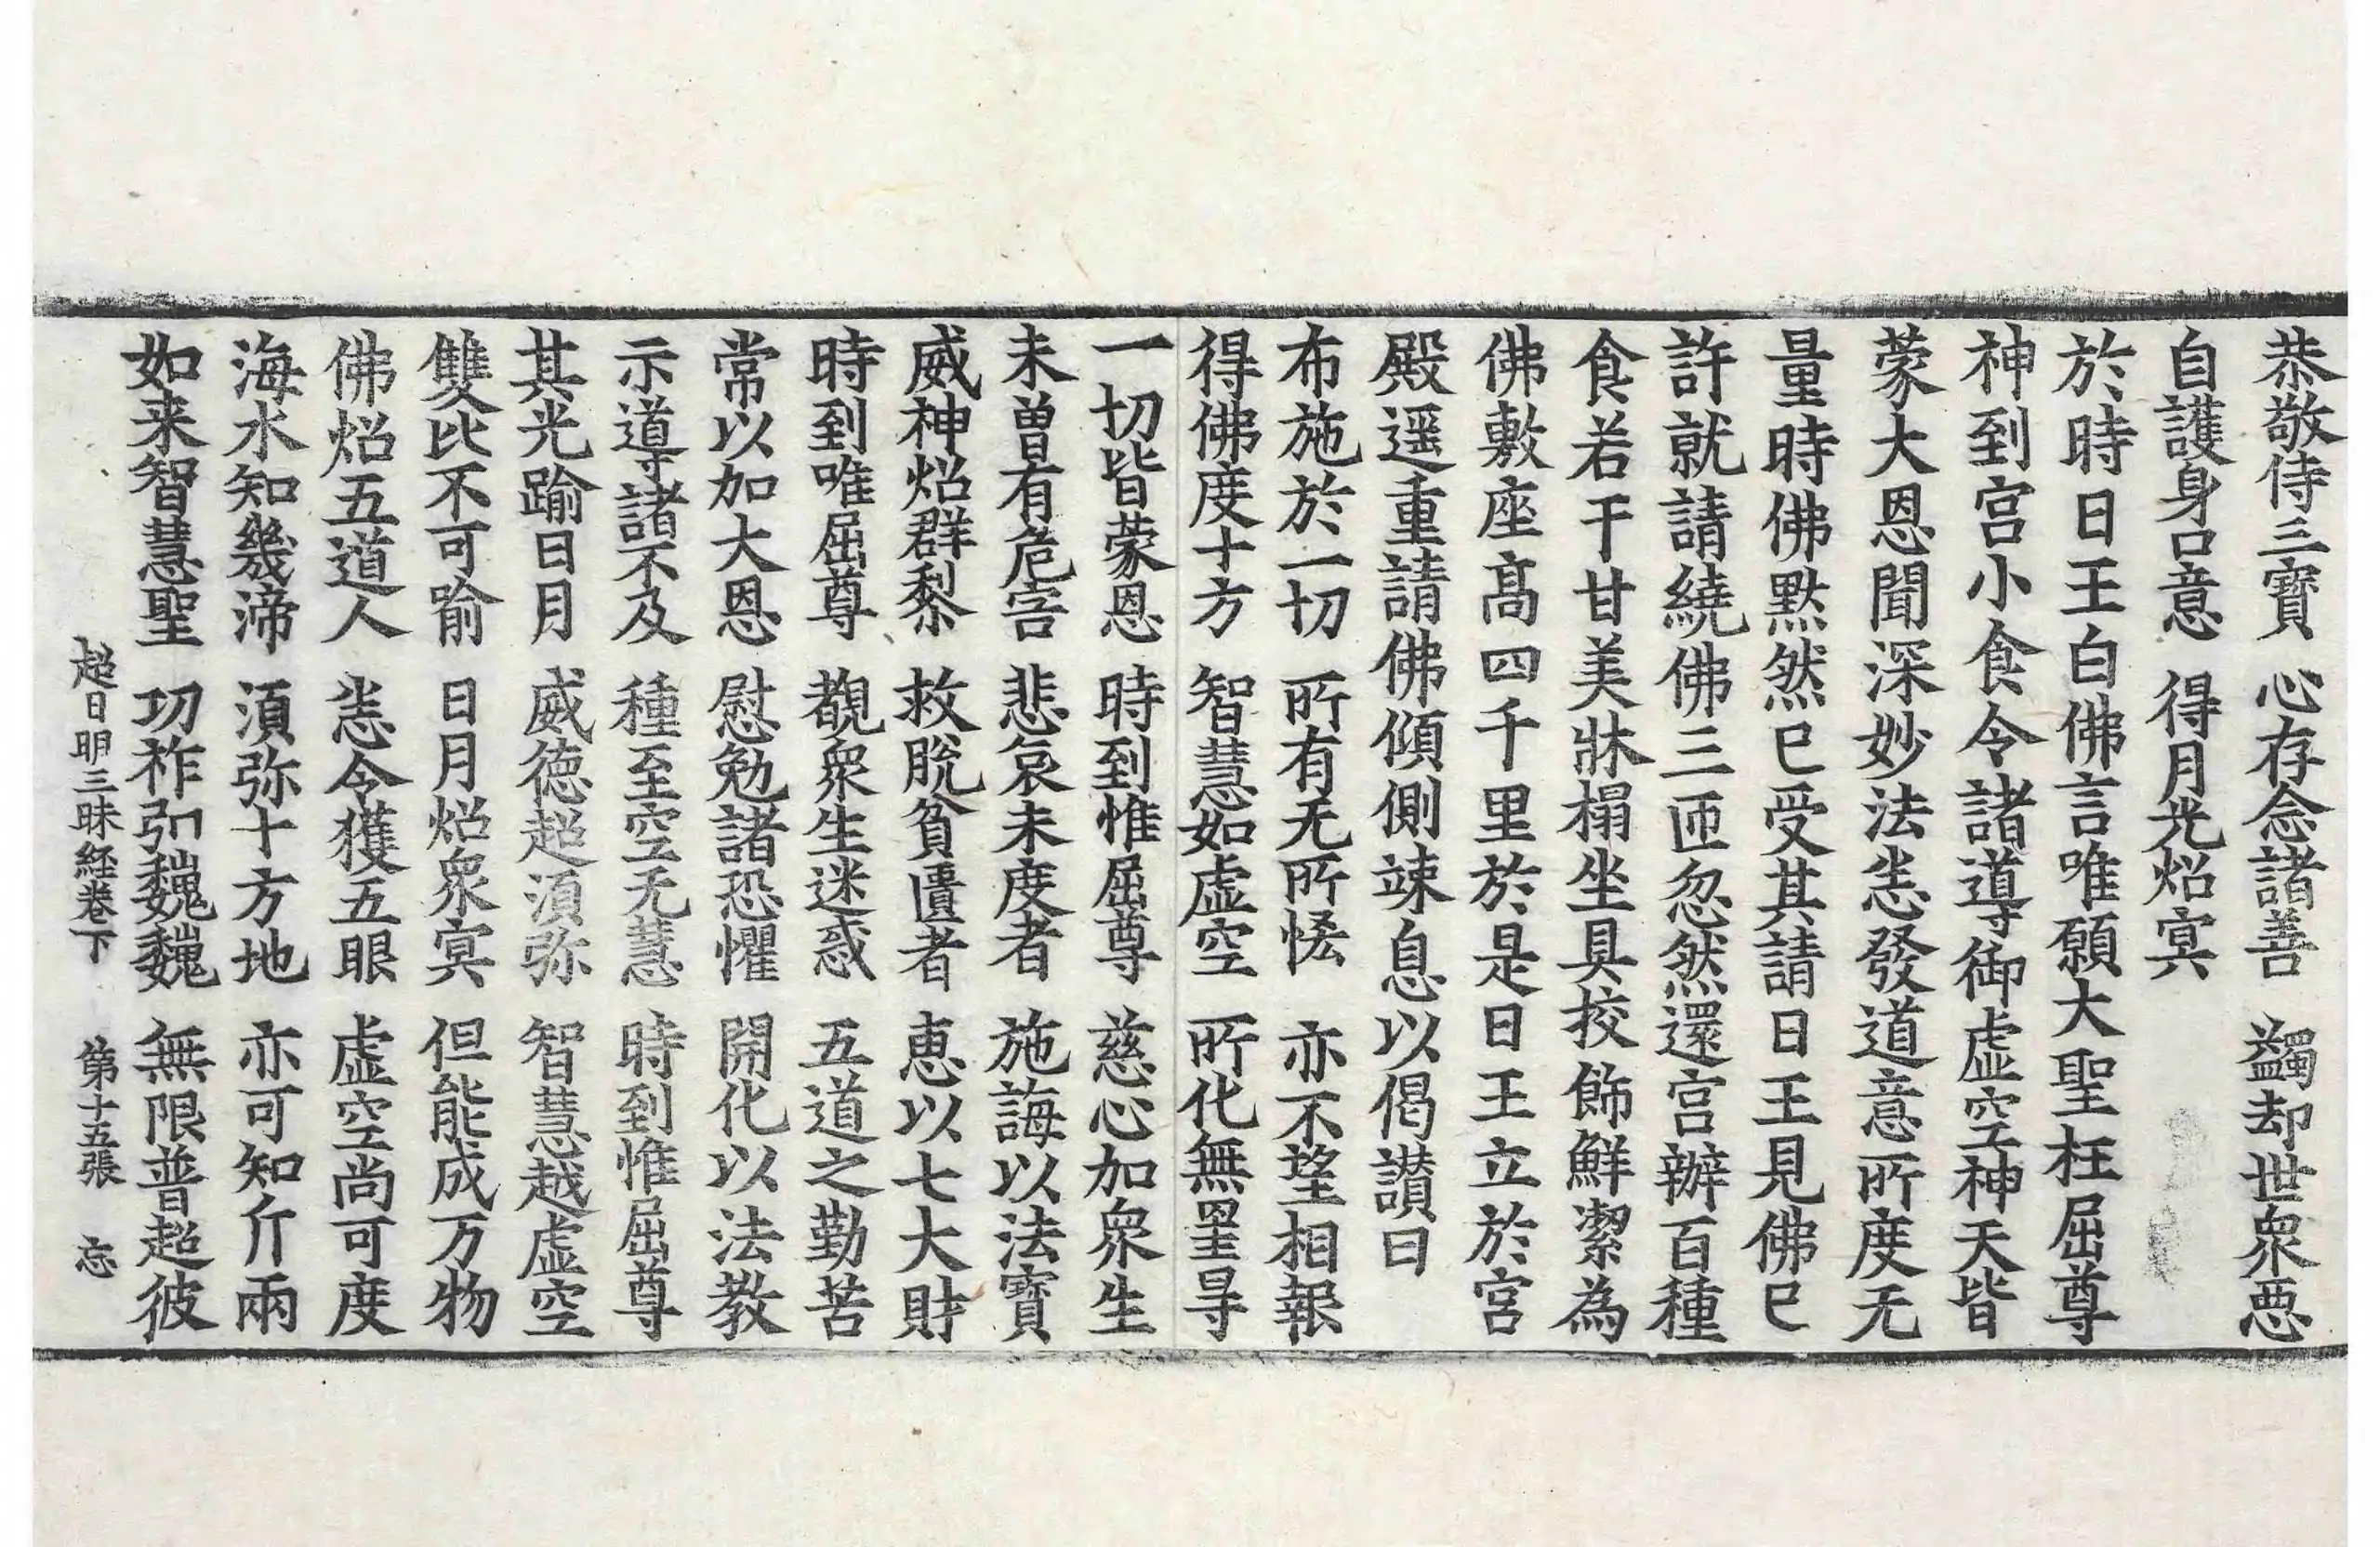 恭敬侍三寶 心存念諸善 蠲却世衆惡
自護身口意 得月光炤𡨋
於時日王白佛言唯願大聖枉屈尊
神到宮小食令諸導御虛空神天皆
蒙大恩聞深妙法悉發道意所度无
量時佛黙然已受其請日王見佛已
許就請繞佛三匝忽然還宮辦百種
食若干甘美牀榻坐具挍飾鮮潔為
佛敷座高四千里於是日王立於宮
殿遥重請佛傾側竦息以偈讃曰
布施於一切 所有无所悕 亦不望相報
得佛度十方 智慧如虛空 所化無罣㝵
一切皆蒙恩 時到惟屈尊 慈心加衆生
未曽有危害 悲哀未度者 施誨以法寶
威神炤群黎 救脫貧匱者 惠以七大財
時到唯屈尊 覩衆生迷惑 五道之勤苦
常以加大恩 慰勉諸恐懼 開化以法教
示導諸不及 種至空无慧 時到惟屈尊
其光踰日月 威德超湏弥 智慧越虛空
雙比不可踰 日月炤衆𡨋 但能成万物
佛炤五道人 悉令獲五眼 虛空尚可度
海水知幾渧 湏弥十方地 亦可知斤兩
如来智慧聖 功祚弘巍巍 無限普超彼
超日明三昧経卷下 第十五張 忘